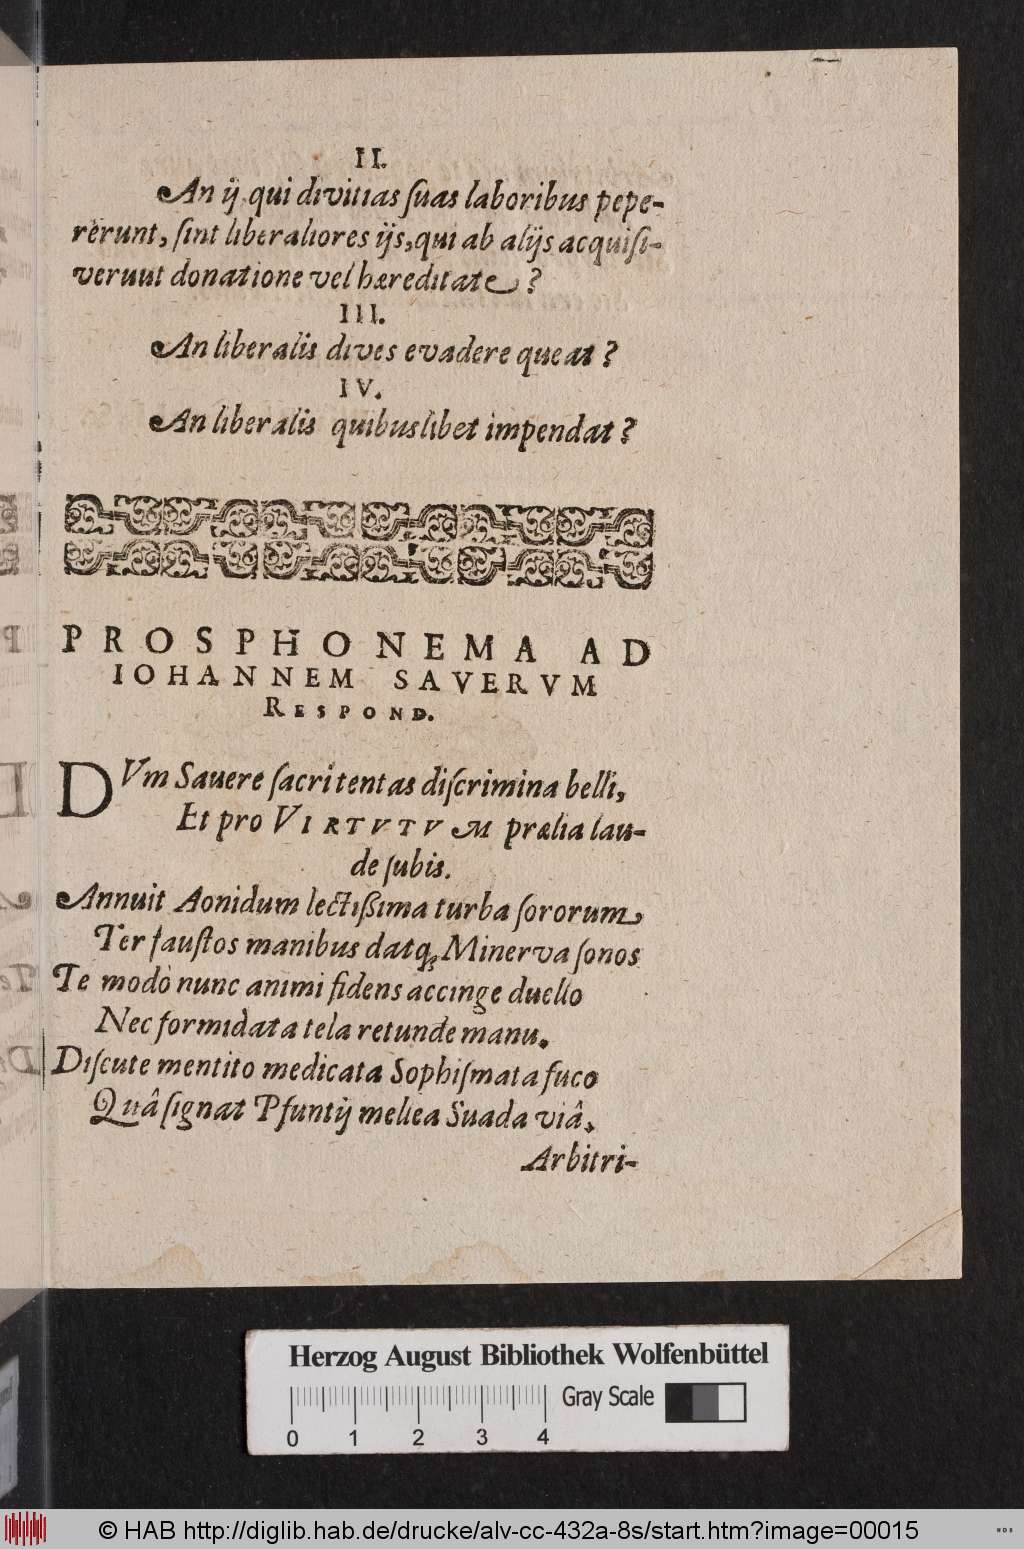 II.
An ij qui divitias ſuas laboribus pepe-
rèrunt, ſint liberaliores ijs, qui ab alijs acquiſi-
veruut donatione vel hæreditate?
III.
An liberalis dives evadere queat?
IV.
An liberalis quibuslibet impendat?
PROSPHONEMA AD
IOHANNEM SAVERVM
RESPOND.
DVm Sauere ſacri tentas diſcrimina belli,
Et pro VIRTVTVM prælia lau-
de ſubis.
Annuit Aonidum lectißima turba ſororum
Ter fauſtos manibus datq; Minerva ſonos
Te modò nunc animi fidens accinge duello
Nec formidata tela retunde manu.
Diſcute mentito medicata Sophiſmata fuco
Quâ ſignat Pſuntij mellea Suada viâ,
Arbitri-
Herzog August Bibliothek Wolfenbüttel
Gray Scale
0 1 2 3 4
© HAB http://diglib.hab.de/drucke/alv-cc-432a-8s/start.htm?image=00015